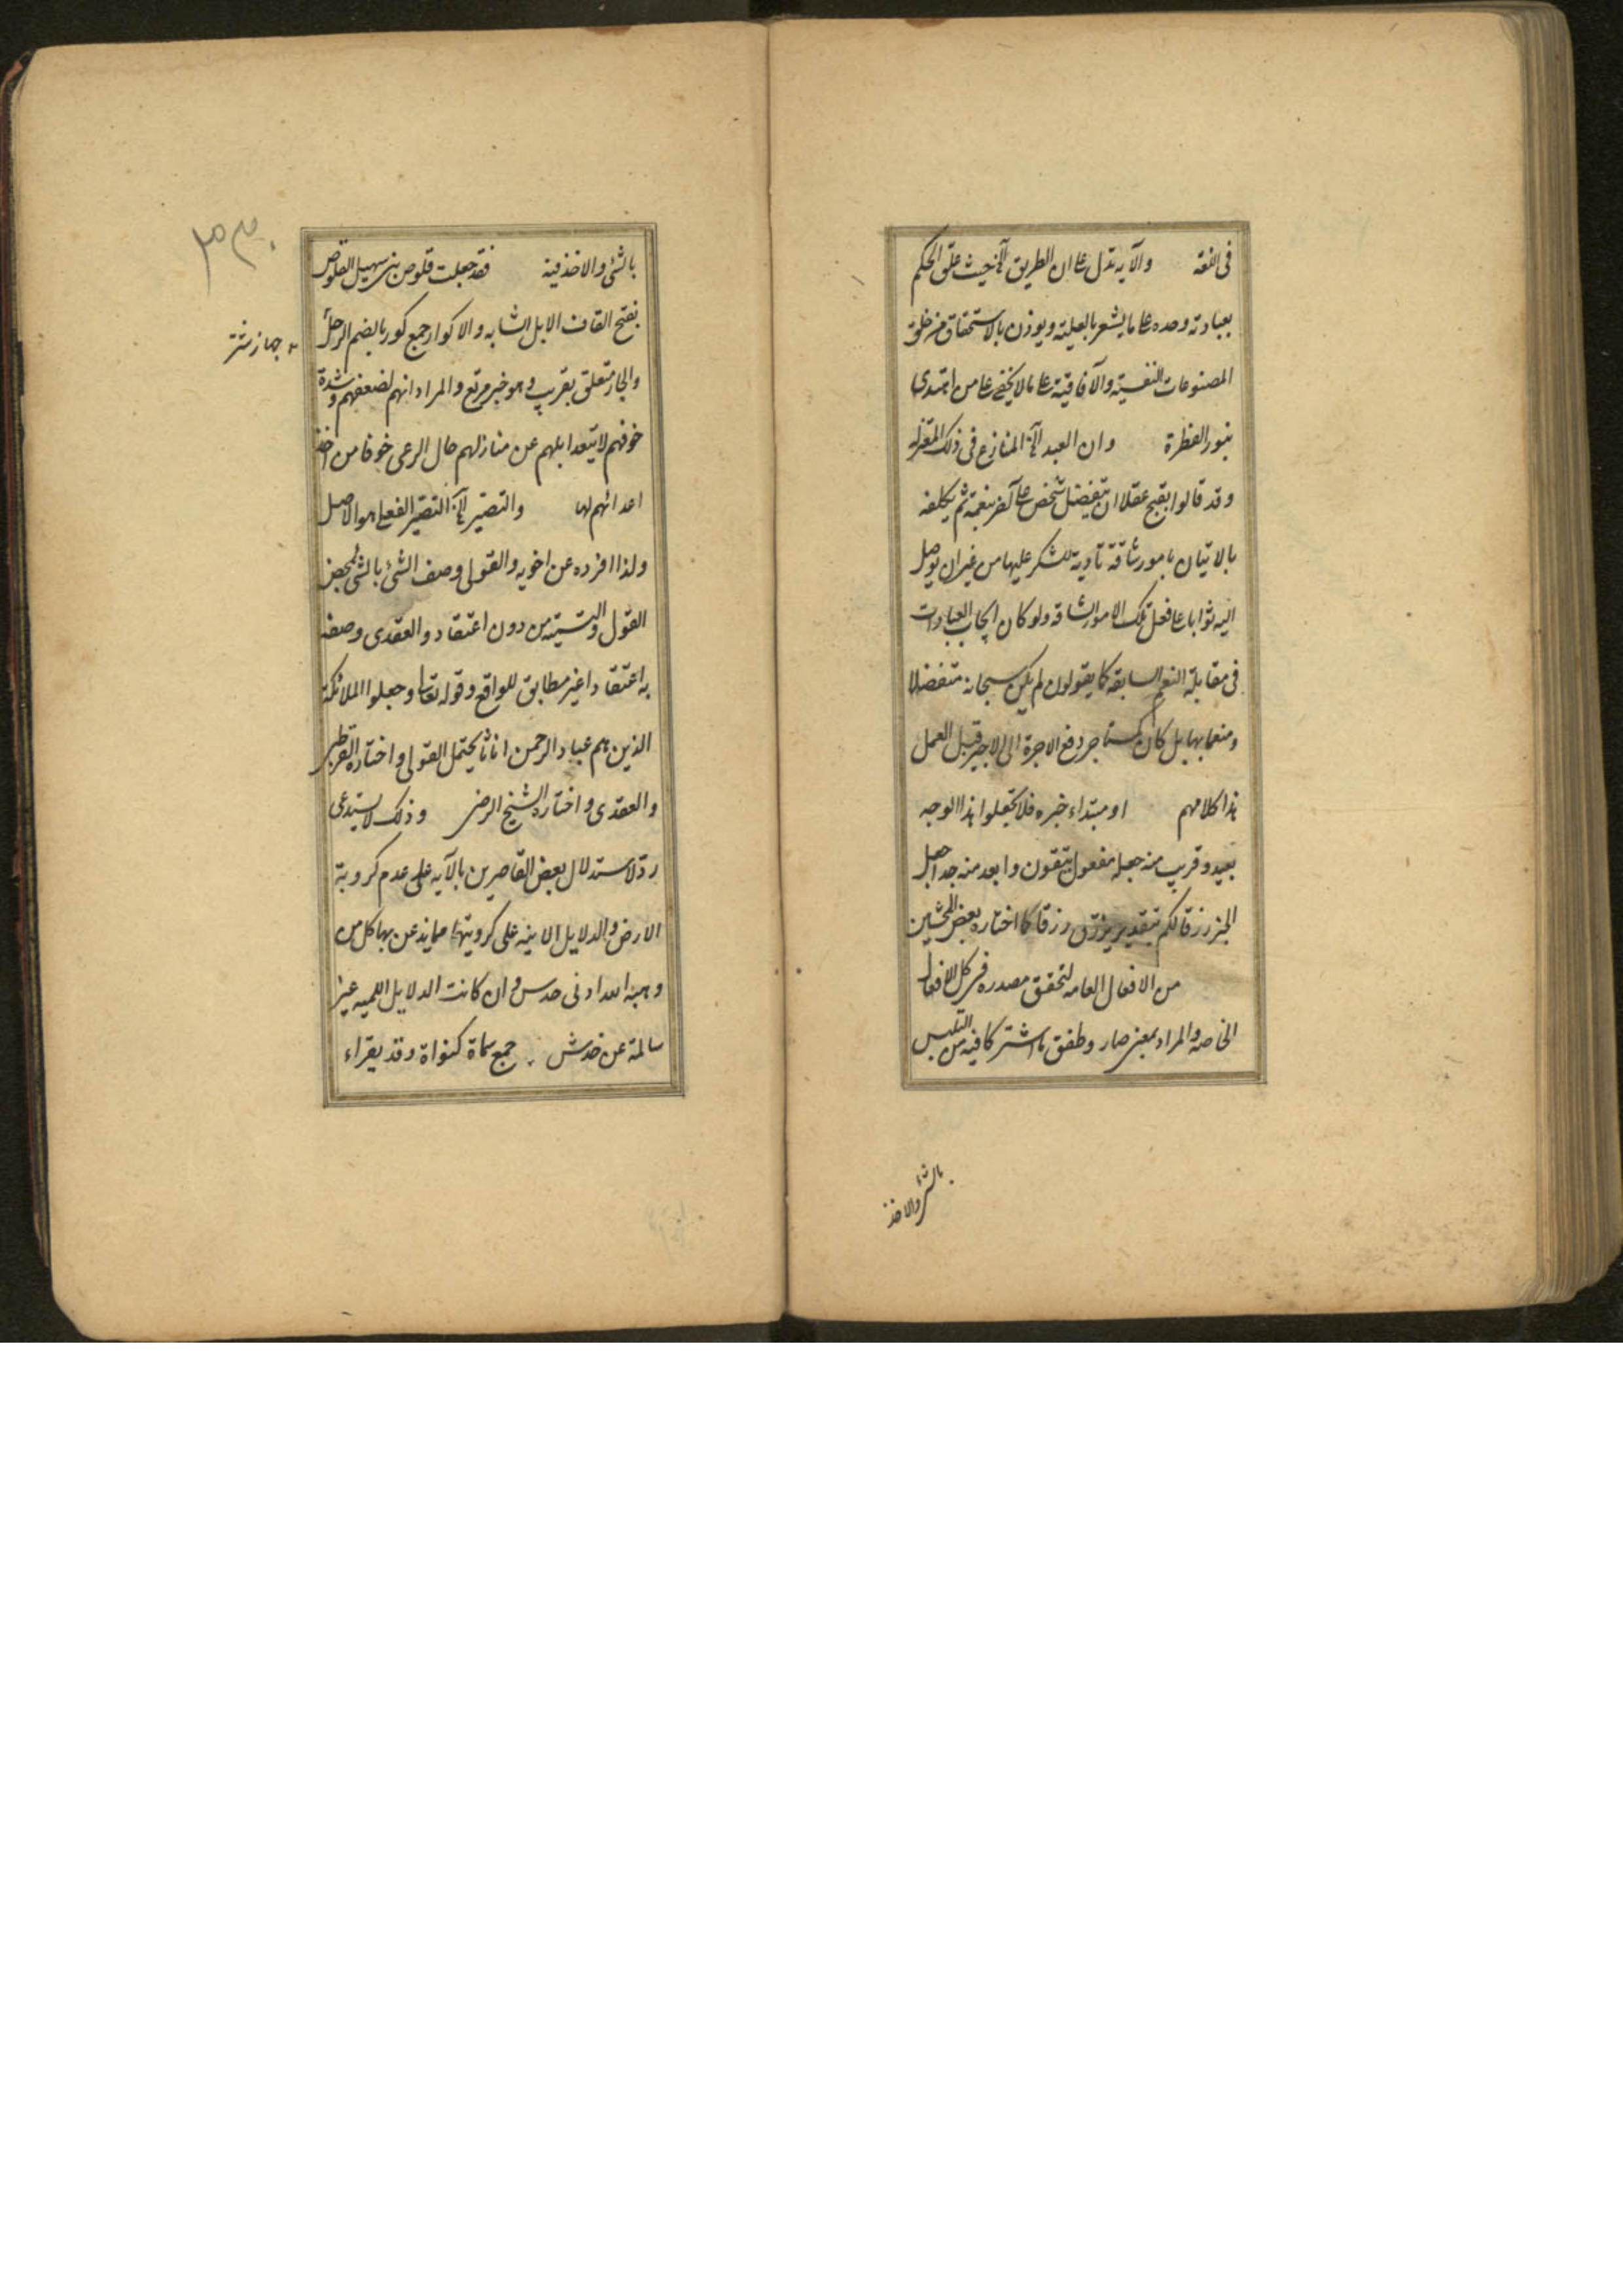 فى اللغة والآية تدل على ان الطريق الخ حيث علق الحكم
بعبادته وحده على ما يشعر بالعلية ويوذن بالاستحقاق من خلق
المصنوعات النفسية والآفاقية على ما لا يخفى على من اهتدى
بنور الفطرة وان العبد الخ المنازع فى ذلك المعتزلة
و قد قالوا يقبح عقلا ان يتفضل شخص على آخر بنعمة ثم يكلفه
بالاتيان بامور شاقة تادية للشكر عليها من غير ان يوصل
اليه ثوابا على فعل تلك الامور الشاقة ولو كان ايجاب العبادات
فى مقابلة النعم السابقة كما يقولون لم يكن سبحانه متفضلا
و منعما بها بل كان كمستاجر دفع الاجرة الى الاجير قبل العمل
هذا كلامهم او مبتداء خبره فلا تجعلوا هذا الوجه
بعيد و قريب منه جعله مفعول تتقون وابعد منه جدا جعل
الخبر رزقا لكم بتقدير يرزق رزقا كما اختاره بعض المحشين
من الافعال العامه لتحقق مصدره فى كل الافعال
الخاصة والمراد بمعنى صار وطفق ما اشتركا فيه من التلبس
بالشئ والاخذ
بالشئ والاخذ فيه فقد جعلت قلوص بنى سهيل القلوص
بفتح القاف الابل الشابه والاكوار جمع كور بالضم الرحل
جهاز شتر
والجار متعلق بقريب وهو خبر مرتع والمراد انهم لضعفهم وشدة
خوفهم لا يتعد ابلهم عن منازلهم حال الرعى خوفا من اخذ
اعدائهم لها والتصيير الخ التصيير الفعلى هو الاصل
ولذا افرده عن اخويه والقولى وصف الشئ بالشئ بمحض
القول والتسمية من دون اعتقاد والعقدى وصفه
به اعتقادا غير مطابق للواقع وقوله تعالى وجعلوا الملائكة
الذين هم عباد الرحمن اناثا يحتمل القولى واختاره القرطبى
والعقدى واختاره الشيخ الرضى وذلك لا يستدعى
رد لاستدلال بعض القاصرين بالآيه على عدم كروية
الارض والدلايل الانية على كرويتها مما يذعن بها كل من
وهبه الله ادنى حدس و ان كانت الدلايل اللمية غير
سالمة عن خدش جمع سماة كنواة وقد يقراء